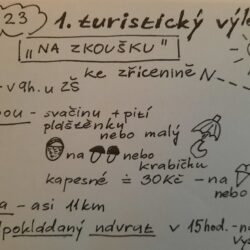 23 1. turistický výl
"NA ZKOUŠKU"
ke zřícenině N
- v 9h. u ZŠ
bou - svačinu + pití
pláštěnku
nebo malý
na nebo
krabičku
kapesné = 30Kč - na
nebo
a - asi 11km
pokládaný návrat v 15hod. -